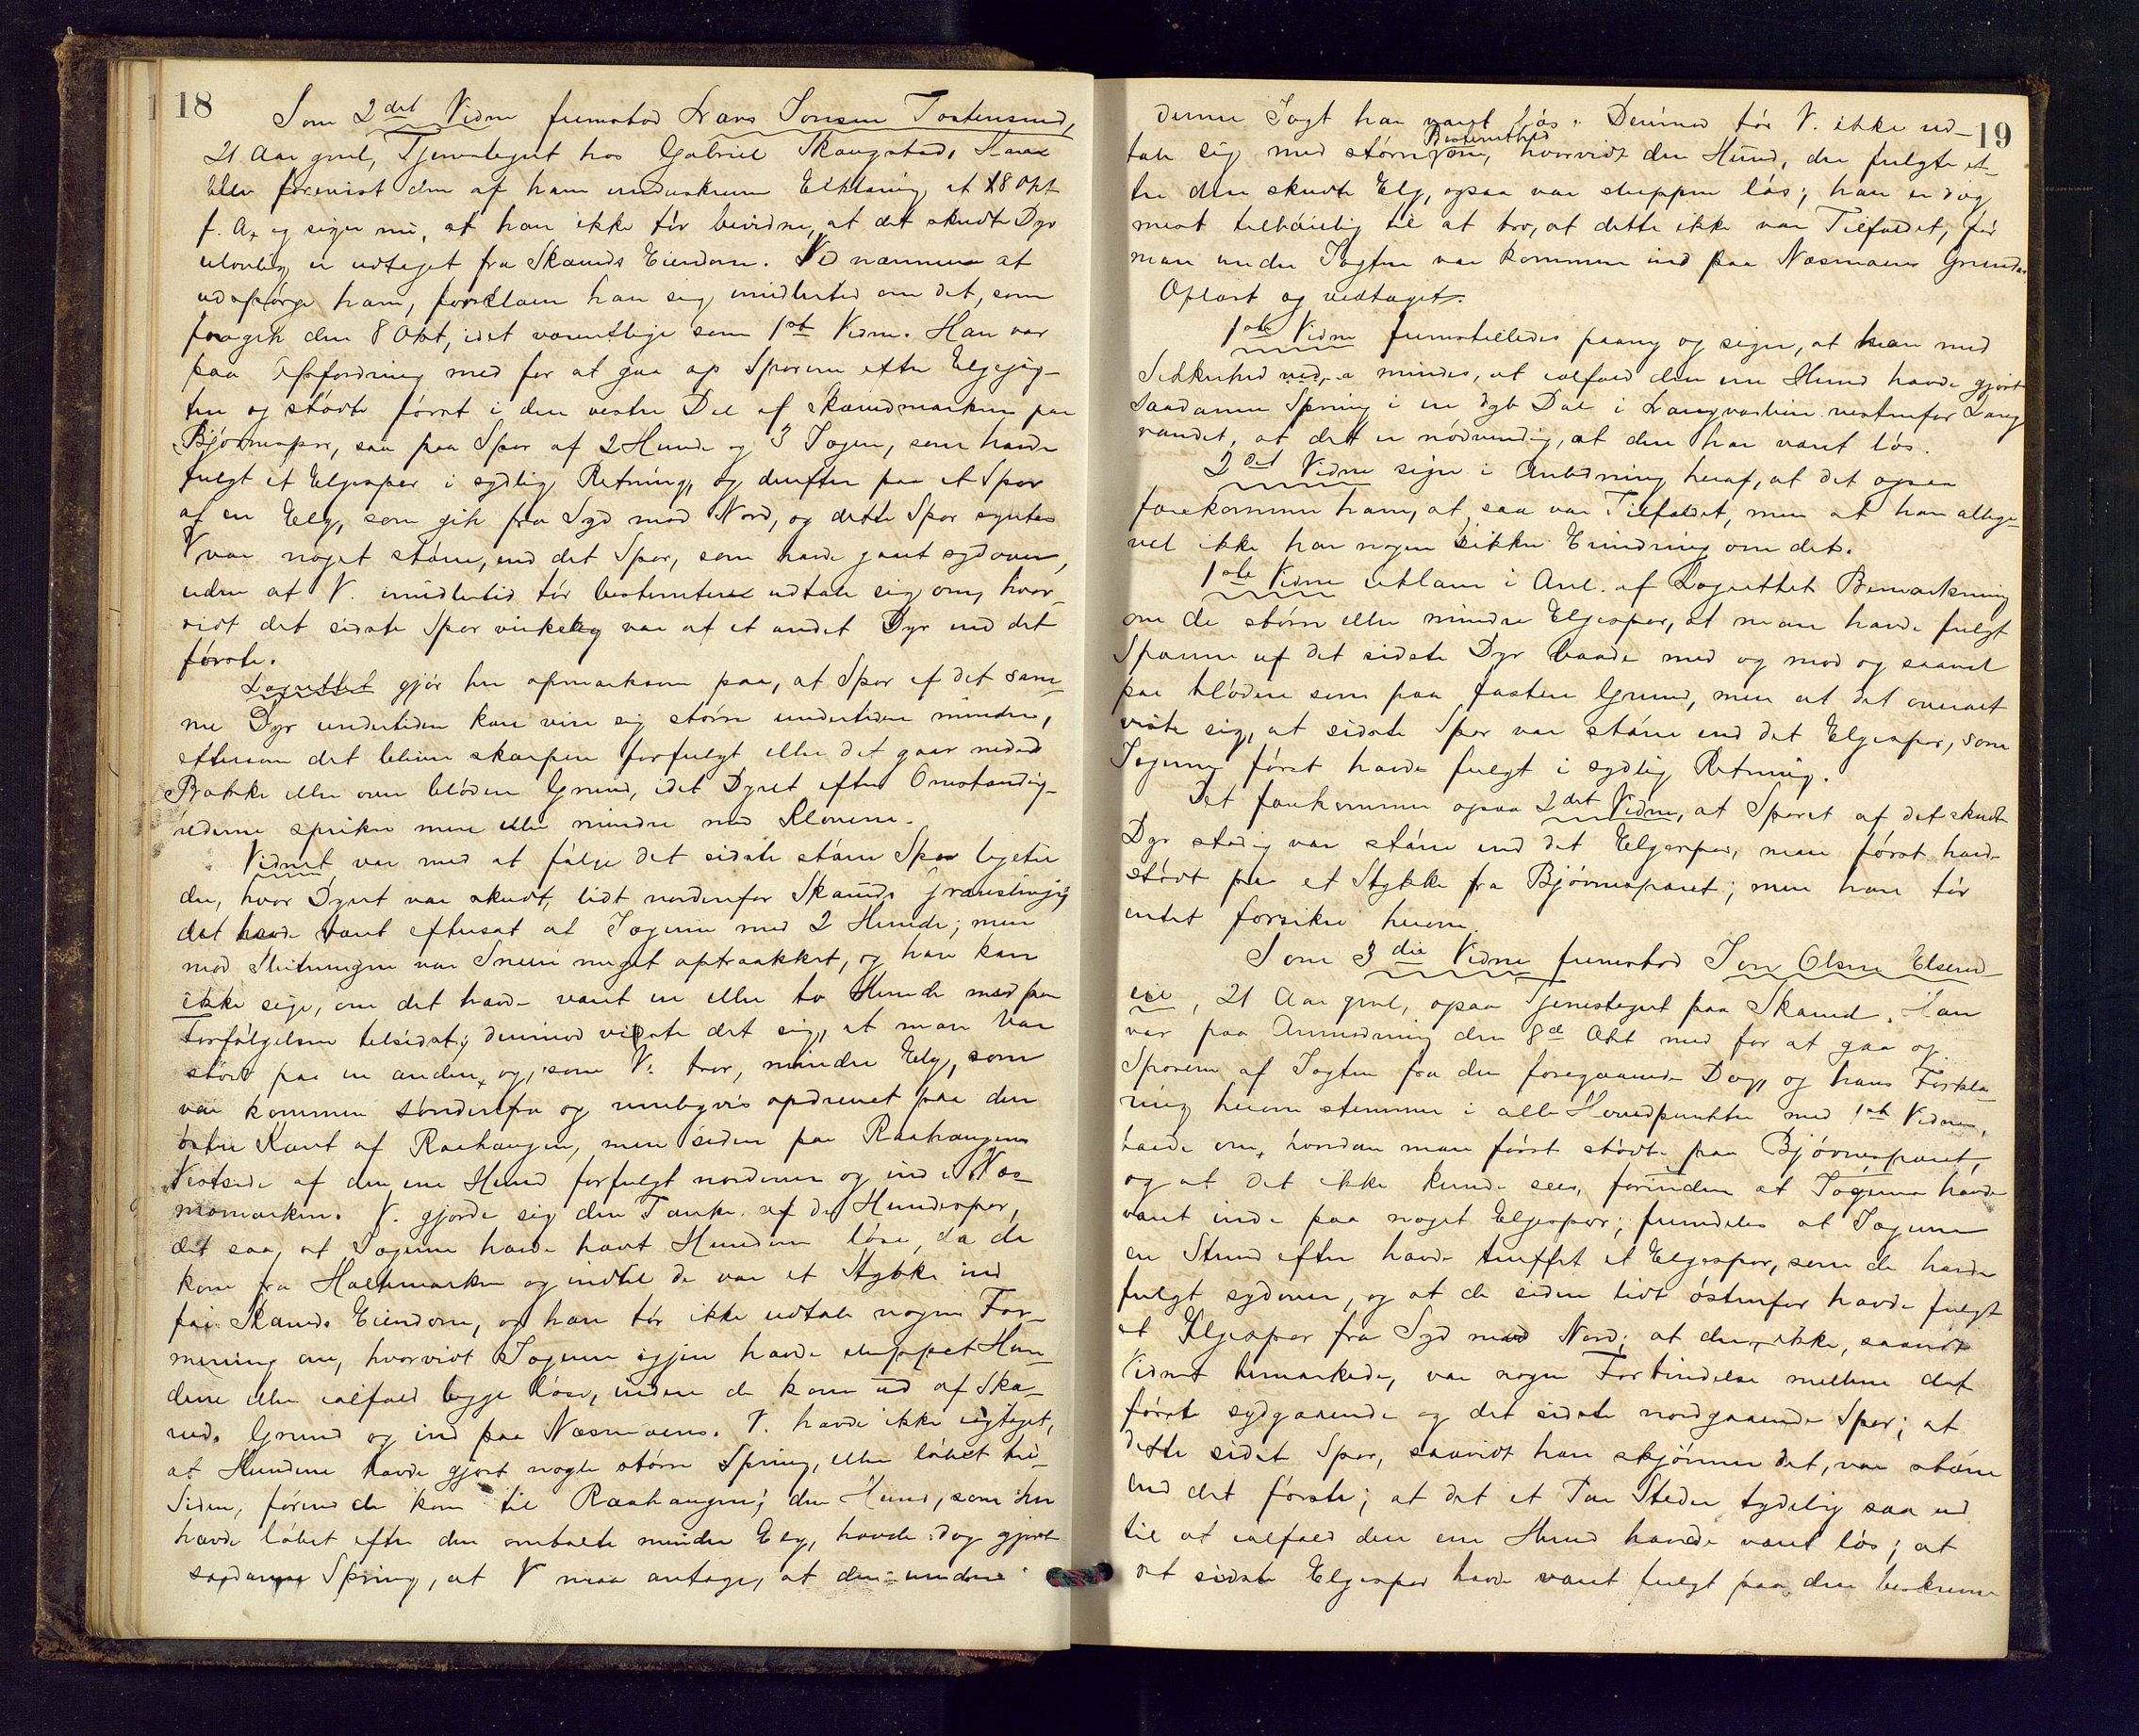 18
Som 2det Vidne fremstod Lars Jonsen Tostensrud,
21 Aar gml, Tjenestegut hos Gabriel Skaugstad. Han
blev forevist den af ham underskrevne Erklæring af 18 Okt
f. A. og siger nu, at han ikke tør bevidne, at det skudte Dyr
ulovlig er udtaget fra Skaruds Eiendom. Ved nærmere at
udspørge ham, forklarer han sig imidlertid om det, som
foregik den 8 Okt, idet væsentlige som 1ste Vidne. Han var
paa Opfordring med for at gaa op Sporene efter Elgejag-
ten og stødte først i den vestre Del af Skarudmarken paa
Bjørnespor, saa paa Spor af 2 Hunde og 3 Jægere, som havde
fulgt et Elgespor i sydlig Retning, og derefter paa et Spor
af en Elg, som gik fra Syd mod Nord, og dette Spor syntes
V var noget større, end det Spor, som havde gaaet sydover,
uden at V. imidlertid tør bestemtere udtale sig om, hvor-
vidt det sidste Spor virkelig var af et andet Dyr end det
første.
Lagrettet gjør her opmærksom paa, at Spor af det sam-
me Dyr undertiden kan vise sig større undertiden mindre,
eftersom det bliver skarpere forfulgt eller det gaar nedad
Bakke eller over blødere Grund, idet Dyret efter Omstændig-
hederne spriker mere eller mindre med Klovene.
Vidnet var med at følge det sidste større Spor ligetil
der, hvor Dyret var skudt, lidt nordenfor Skaruds Grændselinje
det havde været eftersat af Jægerne med 2 Hunde; men
mod Slutningen var Sneen meget optraakket, og han kan
ikke sige, om det havde været en eller to Hunde med paa
Forfølgelsen tilsidst; derimod viste det sig, at man var
stødt paa en anden, og, som V. tror, mindre Elg, som
var kommen søndenfra og rimeligvis opdrevet paa den
østre Kant af Raahaugen, men siden paa Raahaugens
Vestside af den ene Hund forfulgt nordover og ind i Næs-
momarken. V. gjorde sig den Tanke af de Hundespor,
det saa, at Jægerne havde havt Hundene løse, da de
kom fra Holtemarken og indtil de var et Stykke ind
paa Skaruds Eiendom, og han tør ikke udtale nogen For-
mening om, hvorvidt Jægerne igjen havde sluppet Hun-
dene eller ialfald begge løse, inden de kom ud af Ska-
ruds Grund og ind paa Næsmoens. V. havde ikke iagttaget,
at Hundene havde gjort nogle større Spring, eller løbet til-
Siden, førend de kom til Raahaugen; den Hund, som her
havde løbet efter den omtalte mindre Elg, havde dog gjort
saadanne Spring, at V maa antage, at den under
19
denne Jagt har været løs. Derimod tør V. ikke ud-
tale sig med større Bestemthed om, hvorvidt den Hund, der fulgte ef-
ter den skudte Elg, ogsaa var sluppen løs; han er dog
mest tilbøielig til at tro, at dette ikke var Tilfældet, før
man under Jagten var kommen ind paa Næsmoens Grund.
Oplæst og vedtaget.
1ste Vidne fremstilledes paany og siger, at han med
Sikkerhed ved, a mindes, at ialfald den ene Hund havde gjort
saadanne Spring i en dyb Dal i Langvaslien vestenfor Lang
vandet, at det er nødvendig, at den har været løs.
2det Vidne siger i Anledning heraf, at det ogsaa
forekommer ham, at saa var Tilfældet, men at han allige-
vel ikke har nogen sikker Erindring om det.
1ste Vidne erklærer i Anl. af Lagrettets Bemærkning
om de større eller mindre Elgespor, at man havde fulgt
Sporene af det sidste Dyr baade med og mod og saavel
paa blødere som paa fastere Grund, men at det overalt
viste sig, at sidste Spor var større end det Elgespor, som
Jægerne først havde fulgt i sydlig Retning.
Det forekommer ogsaa 2det Vidne, at Sporet af det skudte
Dyr stadig var større end det Elgespor, man først havde
stødt paa et Stykke fra Bjørnesporet; men han tør
intet forsikre herom.
Som 3die Vidne fremstod Jon Olsen Elsrud-
eie, 21 Aar gml, ogsaa Tjenestegut paa Skarud. Han
var paa Anmodning den 8de Okt med for at gaa op
Sporene af Jagten fra den foregaaende Dag, og hans Forkla-
ring herom stemmer i alle Hovedpunkter med 1ste Vidnes,
baade om, hvordan man først stødte paa Bjørnesporet,
og at det ikke kunde sees, forinden at Jægerne havde
været inde paa noget Elgespor; fremdeles at Jægerne
en Stund efter havde truffet et Elgespor, som de havde
fulgt sydover, og at de siden lidt østenfor havde fulgt
et Elgespor fra Syd mod Nord; at der ikke, saavidt
Vidnet bemærkede, var nogen Forbindelse mellem det
første sydgaaende og det sidste nordgaaende Spor; at
dette sidste Spor, saavidt han skjønner det, var større
end det første; at det et Par Steder tydelig saa ud
til at ialfald den ene Hund havde været løs; at
det sidste Elgespor havde været fulgt paa den beskrevne